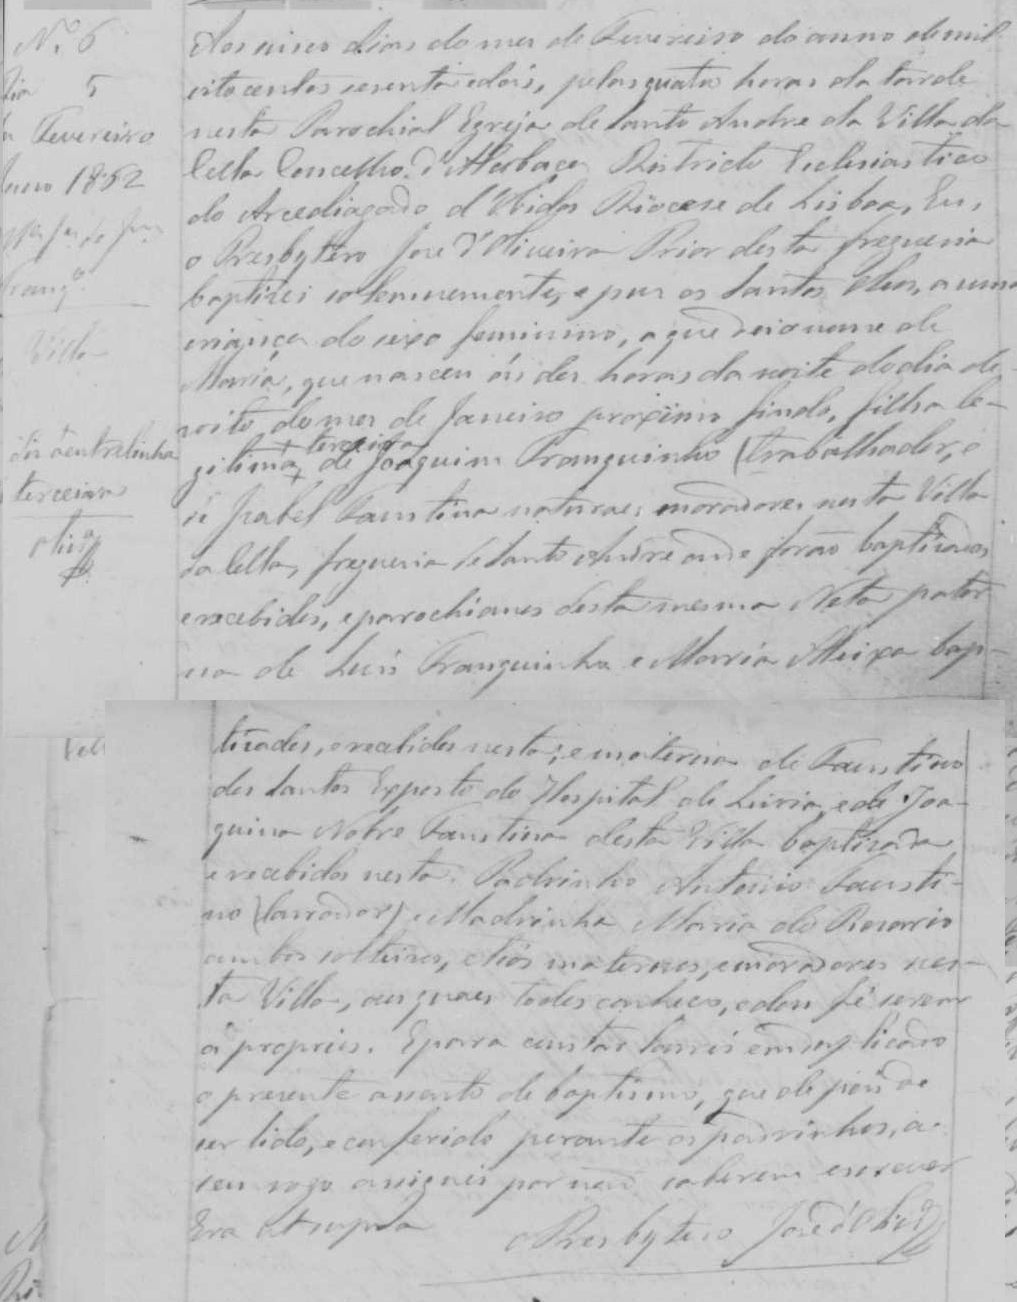 Nº 6
Dia 5
Fevereiro
Anno 1862
Franqª
Villa
entrelinha
terceira
Olivª
Aos cinco dias do mez de Fevereiro do anno de mil
oitocentos secenta e dois, pelas quatro horas da tarde
nesta Parochial Egreja de Santo Andre da Villa da
Cella Concelho d'Alcobaça Districto Eclesiastico
do Arcediagado d'Obidos Diocese de Lisboa, Eu,
o Presbytero José d'Oliveira Prior desta freguesia
baptizei solemnemente, e puz os Santos Oleos, a uma
criança do sexo feminino, a que dei o nome de
Maria, que nasceu ás des horas da noite do dia de-
oito do mez de Janeiro proximo findo, filha le-
terceira
gitima de Joaquim Franquinho (trabalhador, e
de Izabel Faustina naturaes moradores nesta Villa
da Cella, freguesia de Santo Andre onde forão baptizados
e recebidos, e parochianos desta mesma Neta pater
na de Luis Franquinho e Maria Meixa bap-
tizados, e recebidos nesta; e materna de Faustino
dos Santos Exposto do Hospital de Leiria, e de Joa-
quina Nobre Faustina desta Villa baptizada
e recebidos nesta. Padrinho Antonio Fausti-
no (lavrador) e Madrinha Maria do Rozario
ambos solteiros, e tios maternos, e moradores nes-
ta Villa, os quaes todos conheco, e dou fé serem
os proprios. E para constar lavrei em duplicado
o presente assento de baptismo, que depois de
ser lido, e conferido perante os padrinhos, a
seu rogo assignei por não saberem escrever
Era ut supra
O Presbytero José d'Olivª